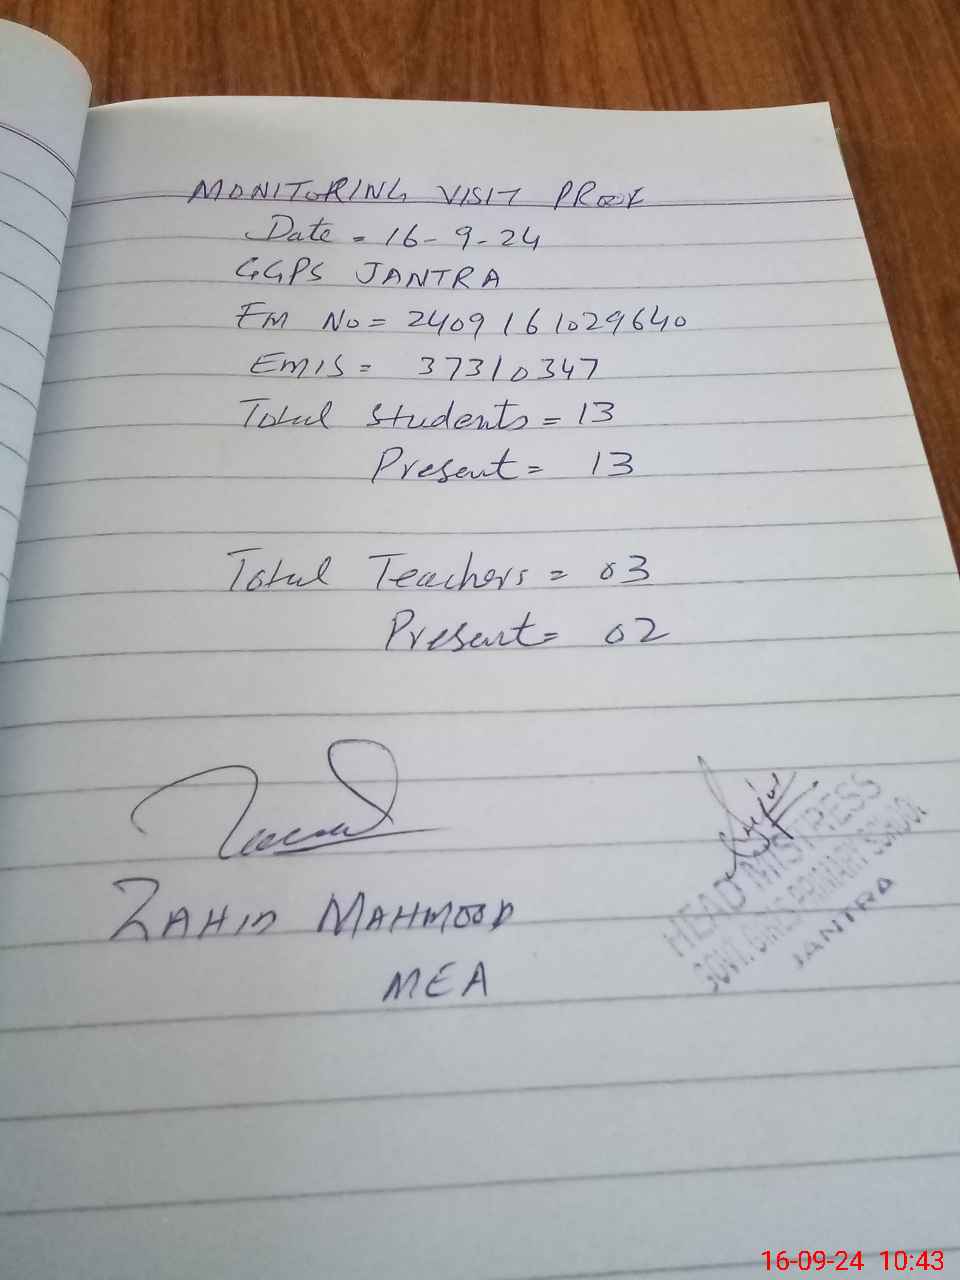 MONITORING VISIT PROOF
Date = 16-9-24
GGPS JANTRA
FM No = 2409161029640
EMIS = 37310347
Total Students = 13
Present = 13
Total Teachers = 03
Present = 02
ZAHID MAHMOOD
MEA
HEAD MISTRESS
GOVT. GIRLS PRIMARY SCHOOL
JANTRA
16-09-24 10:43